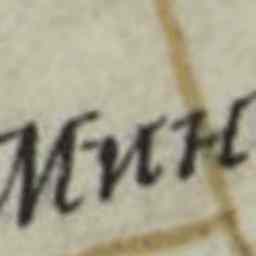 Мин